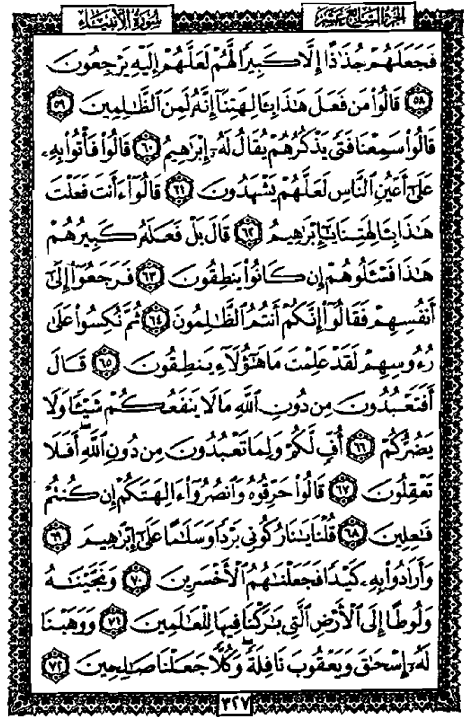 الجزء السابع عشر
سُورَةُ الأَنبِيَاءِ
فَجَعَلَهُمْ جُذَٰذًا إِلَّا كَبِيرًا لَّهُمْ لَعَلَّهُمْ إِلَيْهِ يَرْجِعُونَ
٥٨ قَالُوا۟ مَن فَعَلَ هَٰذَا بِـَٔالِهَتِنَآ إِنَّهُۥ لَمِنَ ٱلظَّٰلِمِينَ ٥٩
قَالُوا۟ سَمِعْنَا فَتًى يَذْكُرُهُمْ يُقَالُ لَهُۥٓ إِبْرَٰهِيمُ ٦٠ قَالُوا۟ فَأْتُوا۟ بِهِۦ
عَلَىٰٓ أَعْيُنِ ٱلنَّاسِ لَعَلَّهُمْ يَشْهَدُونَ ٦١ قَالُوٓا۟ ءَأَنتَ فَعَلْتَ
هَٰذَا بِـَٔالِهَتِنَا يَٰٓإِبْرَٰهِيمُ ٦٢ قَالَ بَلْ فَعَلَهُۥ كَبِيرُهُمْ
هَٰذَا فَسْـَٔلُوهُمْ إِن كَانُوا۟ يَنطِقُونَ ٦٣ فَرَجَعُوٓا۟ إِلَىٰٓ
أَنفُسِهِمْ فَقَالُوٓا۟ إِنَّكُمْ أَنتُمُ ٱلظَّٰلِمُونَ ٦٤ ثُمَّ نُكِسُوا۟ عَلَىٰ
رُءُوسِهِمْ لَقَدْ عَلِمْتَ مَا هَٰٓؤُلَآءِ يَنطِقُونَ ٦٥ قَالَ
أَفَتَعْبُدُونَ مِن دُونِ ٱللَّهِ مَا لَا يَنفَعُكُمْ شَيْـًٔا وَلَا
يَضُرُّكُمْ ٦٦ أُفٍّ لَّكُمْ وَلِمَا تَعْبُدُونَ مِن دُونِ ٱللَّهِ أَفَلَا
تَعْقِلُونَ ٦٧ قَالُوا۟ حَرِّقُوهُ وَٱنصُرُوٓا۟ ءَالِهَتَكُمْ إِن كُنتُمْ
فَٰعِلِينَ ٦٨ قُلْنَا يَٰنَارُ كُونِى بَرْدًا وَسَلَٰمًا عَلَىٰٓ إِبْرَٰهِيمَ ٦٩
وَأَرَادُوا۟ بِهِۦ كَيْدًا فَجَعَلْنَٰهُمُ ٱلْأَخْسَرِينَ ٧٠ وَنَجَّيْنَٰهُ
وَلُوطًا إِلَى ٱلْأَرْضِ ٱلَّتِى بَٰرَكْنَا فِيهَا لِلْعَٰلَمِينَ ٧١ وَوَهَبْنَا
لَهُۥٓ إِسْحَٰقَ وَيَعْقُوبَ نَافِلَةً ۖ وَكُلًّا جَعَلْنَا صَٰلِحِينَ ٧٢
٣٢٧